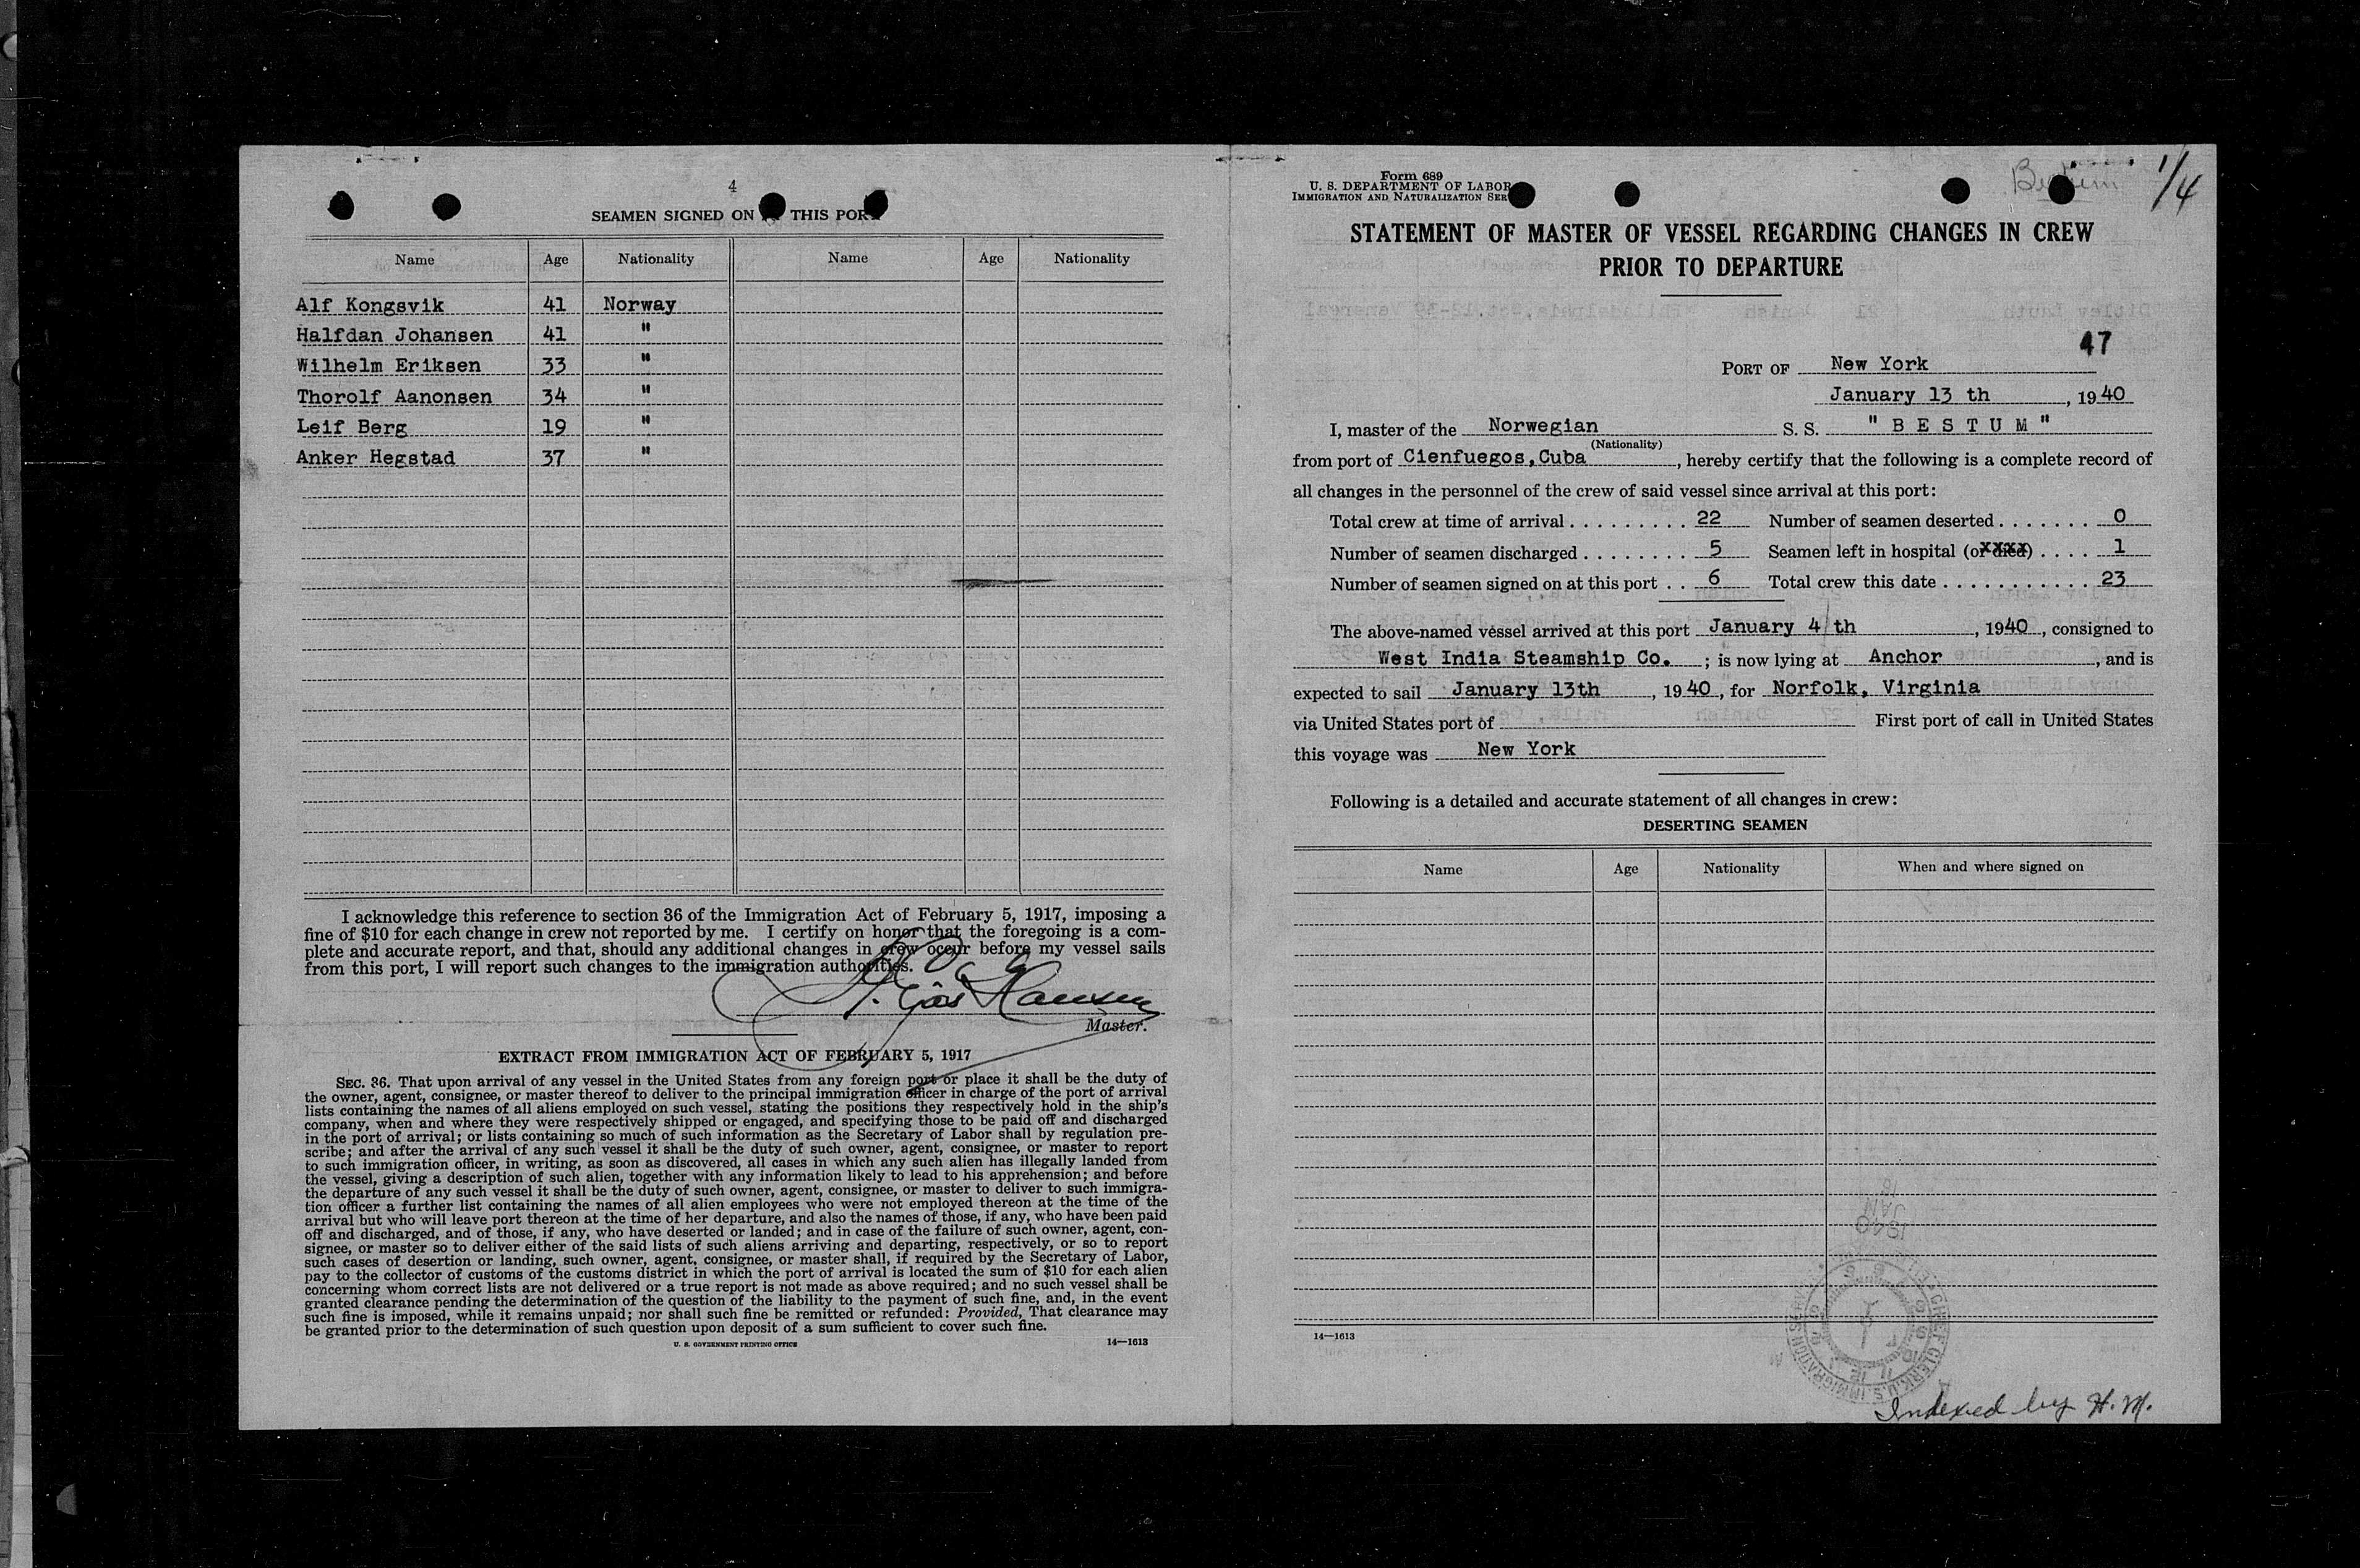 4
SEAMEN SIGNED ON THIS PORT
Name Age Nationality Name Age Nationality
Alf Kongsvik 41 Norway
Halfdan Johansen 41 "
Wilhelm Eriksen 33 "
Thorolf Aanonsen 34 "
Leif Berg 19 "
Anker Hegstad 37 "
I acknowledge this reference to section 36 of the Immigration Act of February 5, 1917, imposing a
fine of $10 for each change in crew not reported by me. I certify on honor that the foregoing is a com-
plete and accurate report, and that, should any additional changes in crew occur before my vessel sails
from this port, I will report such changes to the immigration authorities.
Hansen
Master.
EXTRACT FROM IMMIGRATION ACT OF FEBRUARY 5, 1917
SEC. 36. That upon arrival of any vessel in the United States from any foreign port or place it shall be the duty of
the owner, agent, consignee, or master thereof to deliver to the principal immigration officer in charge of the port of arrival
lists containing the names of all aliens employed on such vessel, stating the positions they respectively hold in the ship's
company, when and where they were respectively shipped or engaged, and specifying those to be paid off and discharged
in the port of arrival; or lists containing so much of such information as the Secretary of Labor shall by regulation pre-
scribe; and after the arrival of any such vessel it shall be the duty of such owner, agent, consignee, or master to report
to such immigration officer, in writing, as soon as discovered, all cases in which any such alien has illegally landed from
the vessel, giving a description of such alien, together with any information likely to lead to his apprehension; and before
the departure of any such vessel it shall be the duty of such owner, agent, consignee, or master to deliver to such immigra-
tion officer a further list containing the names of all alien employees who were not employed thereon at the time of the
arrival but who will leave port thereon at the time of her departure, and also the names of those, if any, who have been paid
off and discharged, and of those, if any, who have deserted or landed; and in case of the failure of such owner, agent, con-
signee, or master so to deliver either of the said lists of such aliens arriving and departing, respectively, or so to report
such cases of desertion or landing, such owner, agent, consignee, or master shall, if required by the Secretary of Labor,
pay to the collector of customs of the customs district in which the port of arrival is located the sum of $10 for each alien
concerning whom correct lists are not delivered or a true report is not made as above required; and no such vessel shall be
granted clearance pending the determination of the question of the liability to the payment of such fine, and, in the event
such fine is imposed, while it remains unpaid; nor shall such fine be remitted or refunded: Provided, That clearance may
be granted prior to the determination of such question upon deposit of a sum sufficient to cover such fine.
U. S. GOVERNMENT PRINTING OFFICE 14—1613
Form 689
U. S. DEPARTMENT OF LABOR
IMMIGRATION AND NATURALIZATION SER
1/4
STATEMENT OF MASTER OF VESSEL REGARDING CHANGES IN CREW
PRIOR TO DEPARTURE
47
PORT OF New York
January 13 th, 1940
I, master of the Norwegian S. S. " B E S T U M "
(Nationality)
from port of Cienfuegos, Cuba, hereby certify that the following is a complete record of
all changes in the personnel of the crew of said vessel since arrival at this port:
Total crew at time of arrival . . . . . . . . . 22 Number of seamen deserted . . . . . . . 0
Number of seamen discharged . . . . . . . . 5 Seamen left in hospital (or died) . . . . 1
Number of seamen signed on at this port . . 6 Total crew this date . . . . . . . . . . . 23
The above-named vessel arrived at this port January 4 th, 1940, consigned to
West India Steamship Co. ; is now lying at Anchor, and is
expected to sail January 13th, 1940, for Norfolk, Virginia
via United States port of First port of call in United States
this voyage was New York
Following is a detailed and accurate statement of all changes in crew:
DESERTING SEAMEN
Name Age Nationality When and where signed on
14—1613
Indexed by H. M.